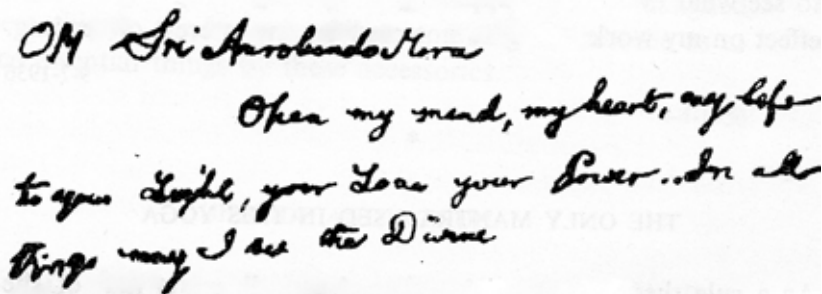 OM Sri Aurobindo Mira
Open my mind, my heart, my life
to your Light, your Love your Power. In all
things may I see the Divine